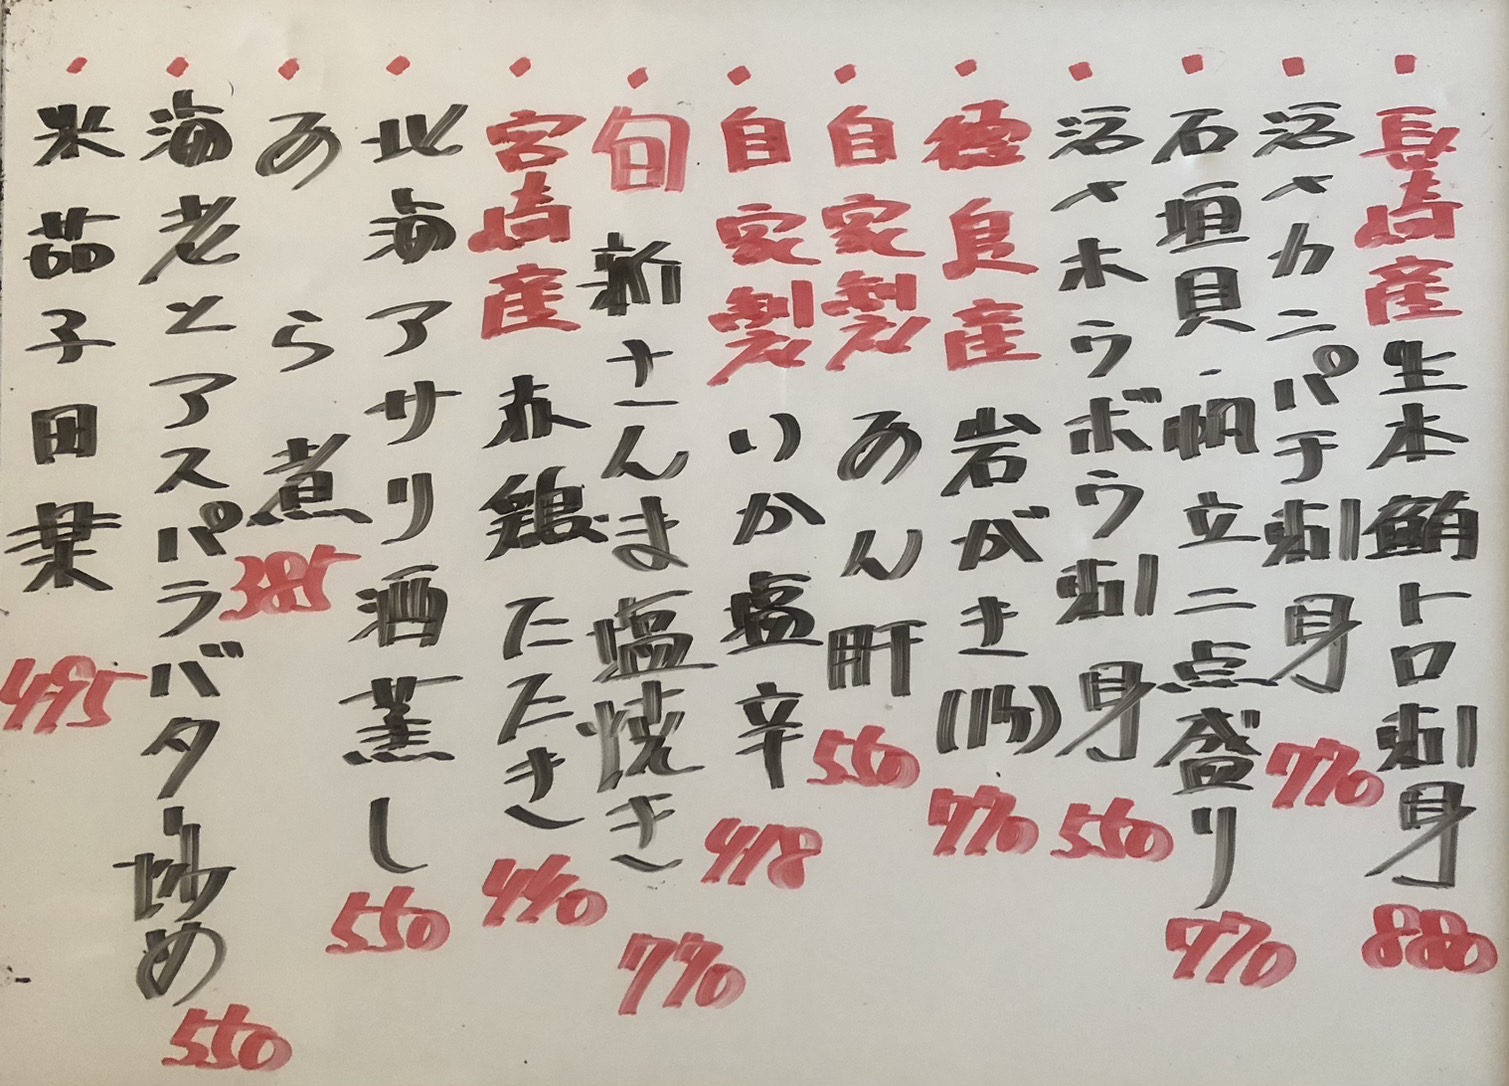 ・長崎産 生本鮪トロ刺身 880
・活〆カンパチ刺身 770
・石垣貝・帆立二点盛り 770
・活〆ホウボウ刺身 550
・岩がき 770
・自家製 あん肝 550
・自家製 いか塩辛 418
・旬 新さんま塩焼き 770
・宮崎産 赤鶏たたき 440
・北海アサリ酒蒸し 550
・あら煮 385
・海老とアスパラバター炒め 550
・米茄子田楽 495